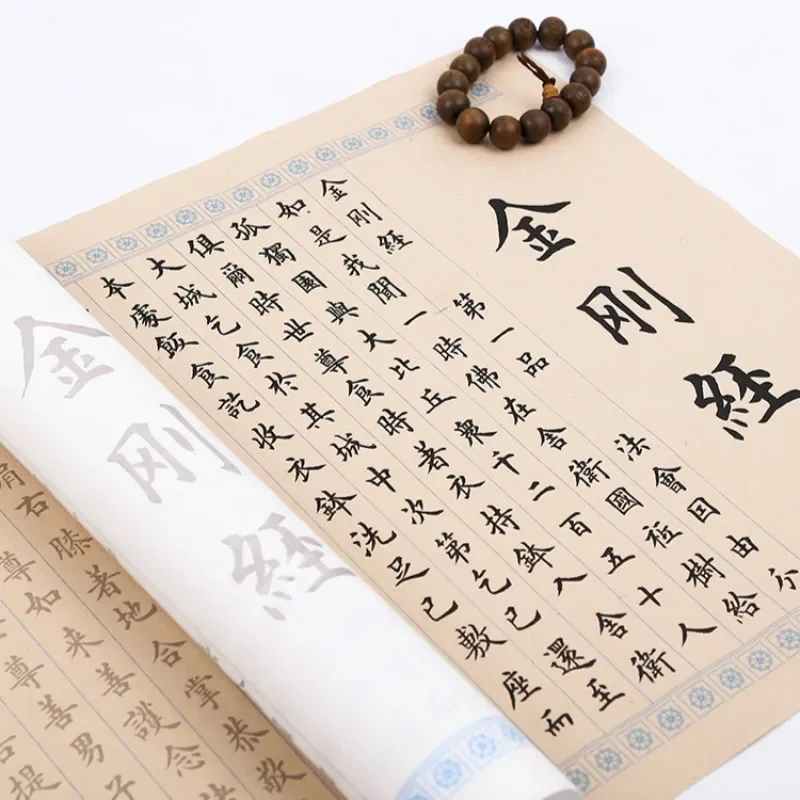 金刚經
金刚經 第一品 法會囙由分
如是我聞一時佛在舍衛國祇樹給
孤獨園與大比丘眾千二百五十人
俱爾時世尊食時著衣持鉢入舍衛
大城乞食於其城中次第乞已還至
本處飯食訖收衣鉢洗足已敷座而
金刚經
肩右膝著地合掌恭敬
尊如來善護念
尊善男子
提